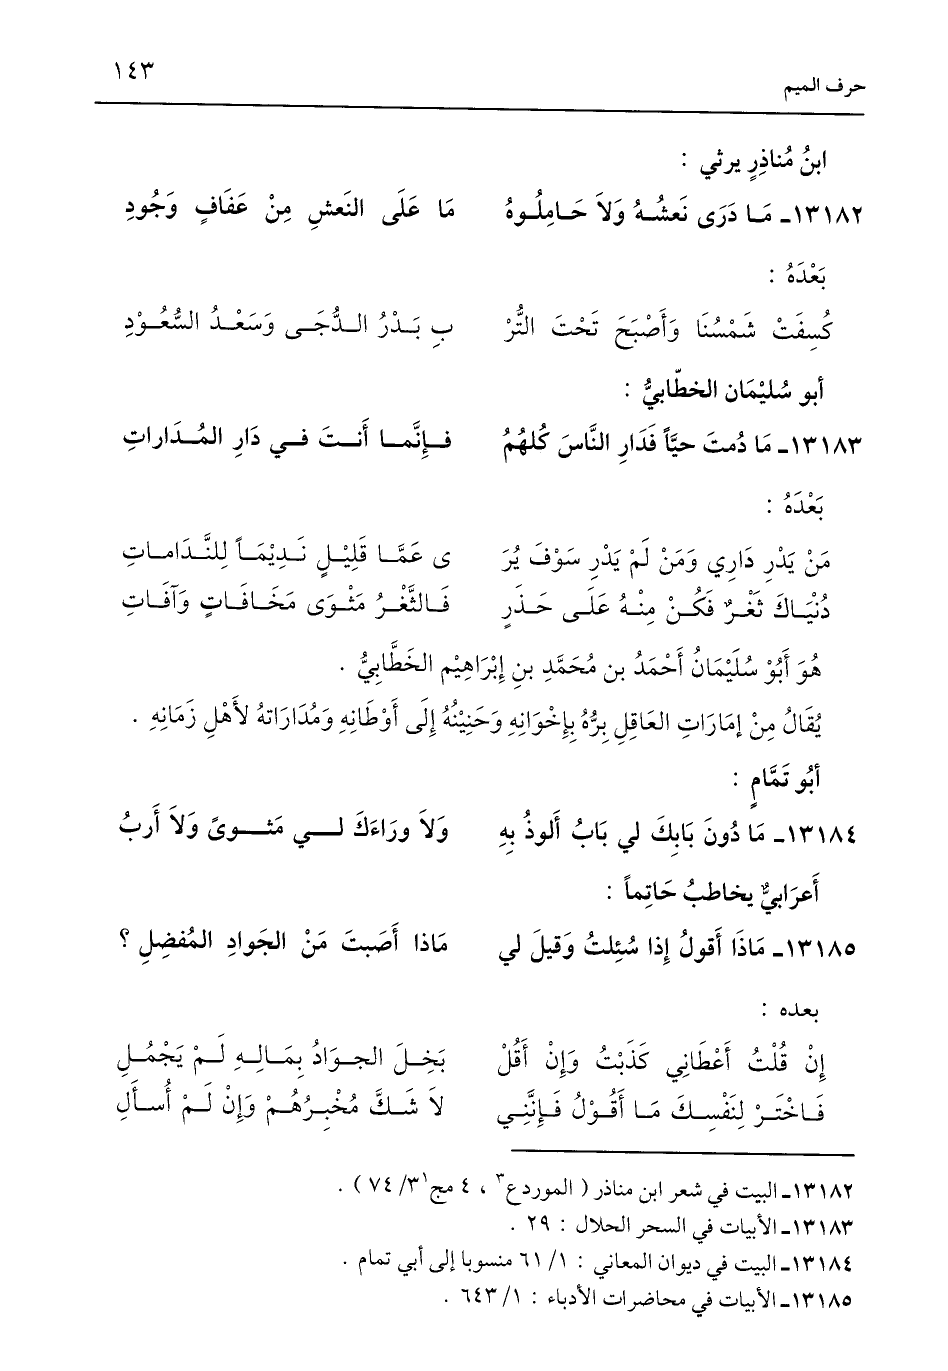 ١٤٣
حرف الميم
ابنُ مُناذِرٍ يرثي :
١٣١٨٢ـ مَا دَرَى نَعشُهُ وَلاَ حَامِلُوهُ مَا عَلَى النَعشِ مِنْ عَفَافٍ وَجُودِ
بَعْدَهُ :
كُسِفَتْ شَمْسُنَا وَأَصْبَحَ تَحْتَ التُّرْ بِ بَدْرُ الدُّجَى وَسَعْدُ السُّعُوْدِ
أبو سُليْمَان الخطّابيُّ :
١٣١٨٣ـ مَا دُمتَ حيَّاً فَدَارِ النَّاسَ كُلهُمُ فَإِنَّمَا أَنتَ في دَارِ المُدَاراتِ
بَعْدَهُ :
مَنْ يَدْرِ دَارِي وَمَنْ لَمْ يَدْرِ سَوْفَ يُرَ ى عَمَّا قَلِيْلٍ نَدِيْمَاً لِلنَّدَامـاتِ
دُنْيَاكَ ثَغْرٌ فَكُنْ مِنْهُ عَلَى حَذَرٍ فَالثَّغْرُ مَثْوَى مَخَافَاتٍ وَآفَاتِ
هُوَ أَبُوْ سُلَيْمَانُ أَحْمَدُ بن مُحَمَّدِ بنِ إِبْرَاهِيْم الخَطَّابِيُّ .
يُقَالُ مِنْ إمَارَاتِ العَاقِلِ بِرُّهُ بِإخْوَانِهِ وَحَنِيْنُهُ إِلَى أَوْطَانِهِ وَمُدَارَاتهُ لأَهْلِ زَمَانِهِ .
أبُو تَمَّامٍ :
١٣١٨٤ـ مَا دُونَ بَابِكَ لي بَابُ أَلوذُ بِهِ وَلاَ ورَاءَكَ لي مَثوىً وَلاَ أَربُ
أَعرَابيٌّ يخاطبُ حَاتِماً :
١٣١٨٥ـ مَاذَا أَقولُ إِذا سُئِلتُ وَقيلَ لي مَاذا أَصَبتَ مَنْ الجَوادِ المُفضِلِ ؟
بعده :
إِنْ قُلْتُ أَعْطَانِي كَذَبْتُ وَإِنْ أَقُلْ بَخِلَ الجوَادُ بِمَالِهِ لَمْ يَجْمُلِ
فَاخْتَرْ لِنَفْسِكَ مَا أَقُوْلُ فَإِنَّنِي لاَ شَكَّ مُخْبِرُهُمْ وَإِنْ لَمْ أُسأَلِ
١٣١٨٢ـ البيت في شعر ابن مناذر ( الموردع٣ ، ٤ مج١ ٣/ ٧٤ ) .
١٣١٨٣ـ الأبيات في السحر الحلال : ٢٩ .
١٣١٨٤ـ البيت في ديوان المعاني : ١/ ٦١ منسوبا إلى أبي تمام .
١٣١٨٥ـ الأبيات في محاضرات الأدباء : ١/ ٦٤٣ .